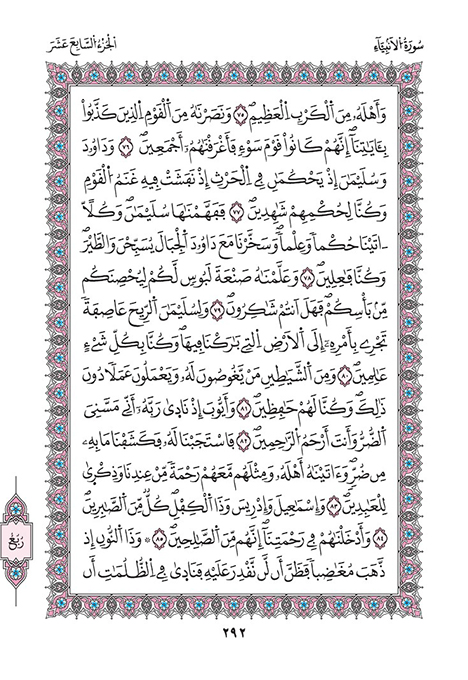 سُورَةُ الأَنبِيَاءِ
الجُزْءُ السَّابِعَ عَشَرَ
وَأَهْلَهُۥ مِنَ اَلْكَرْبِ اِلْعَظِيمِ ٧٥ وَنَصَرْنَٰهُ مِنَ اَلْقَوْمِ اِلذِينَ كَذَّبُواْ
بِـَٔايَٰتِنَا إِنَّهُمْ كَانُواْ قَوْمَ سَوْءٖ فَأَغْرَقْنَٰهُمُۥٓ أَجْمَعِينَ ٧٦ وَدَاوُۥدَ
وَسُلَيْمَٰنَ إِذْ يَحْكُمَٰنِ فِے اِلْحَرْثِ إِذْ نَفَشَتْ فِيهِ غَنَمُ اُلْقَوْمِ
وَكُنَّا لِحُكْمِهِمْ شَٰهِدِينَ ٧٧ فَفَهَّمْنَٰهَا سُلَيْمَٰنَ وَكُلّاً
ـاتَيْنَا حُكْماً وَعِلْماً وَسَخَّرْنَا مَعَ دَاوُۥدَ اَلْجِبَالَ يُسَبِّحْنَ وَالطَّيْرَ
وَكُنَّا فَٰعِلِينَ ٧٨ وَعَلَّمْنَٰهُ صَنْعَةَ لَبُوسٖ لَّكُمْ لِيُحْصِنَكُم
مِّنۢ بَأْسِكُمْ فَهَلَ اَنتُمْ شَٰكِرُونَ ٧٩ وَلِسُلَيْمَٰنَ اَلرِّيحَ عَاصِفَةٗ
تَجْرِے بِأَمْرِهِۦٓ إِلَى اَلَارْضِ اِلتِے بَٰرَكْنَا فِيهَا وَكُنَّا بِكُلِّ شَےْءٍ
عَٰلِمِينَ ٨٠ وَمِنَ اَلشَّيَٰطِينِ مَنْ يَّغُوصُونَ لَهُۥ وَيَعْمَلُونَ عَمَلاٗ دُونَ
ذَٰلِكَ وَكُنَّا لَهُمْ حَٰفِظِينَ ٨١ وَأَيُّوبَ إِذْ نَادَىٰ رَبَّهُۥٓ أَنِّے مَسَّنِيَ
اَلضُّرُّ وَأَنتَ أَرْحَمُ اُلرَّٰحِمِينَ ٨٢ فَاسْتَجَبْنَا لَهُۥ فَكَشَفْنَا مَا بِهِۦ
مِن ضُرّٖ وَءَاتَيْنَٰهُ أَهْلَهُۥ وَمِثْلَهُم مَّعَهُمْ رَحْمَةٗ مِّنْ عِندِنَا وَذِكْرَىٰ
لِلْعَٰبِدِينَ ٨٣ وَإِسْمَٰعِيلَ وَإِدْرِيسَ وَذَا اَلْكِفْلِ كُلّٞ مِّنَ اَلصَّٰبِرِينَ
٨٤ وَأَدْخَلْنَٰهُمْ فِے رَحْمَتِنَآ إِنَّهُم مِّنَ اَلصَّٰلِحِينَ ٨٥ * وَذَا اَلنُّونِ إِذ
ذَّهَبَ مُغَٰضِباٗ فَظَنَّ أَن لَّن نَّقْدِرَ عَلَيْهِ فَنَادَىٰ فِے اِلظُّلُمَٰتِ أَن
رُبُعٌ
٢٩٢